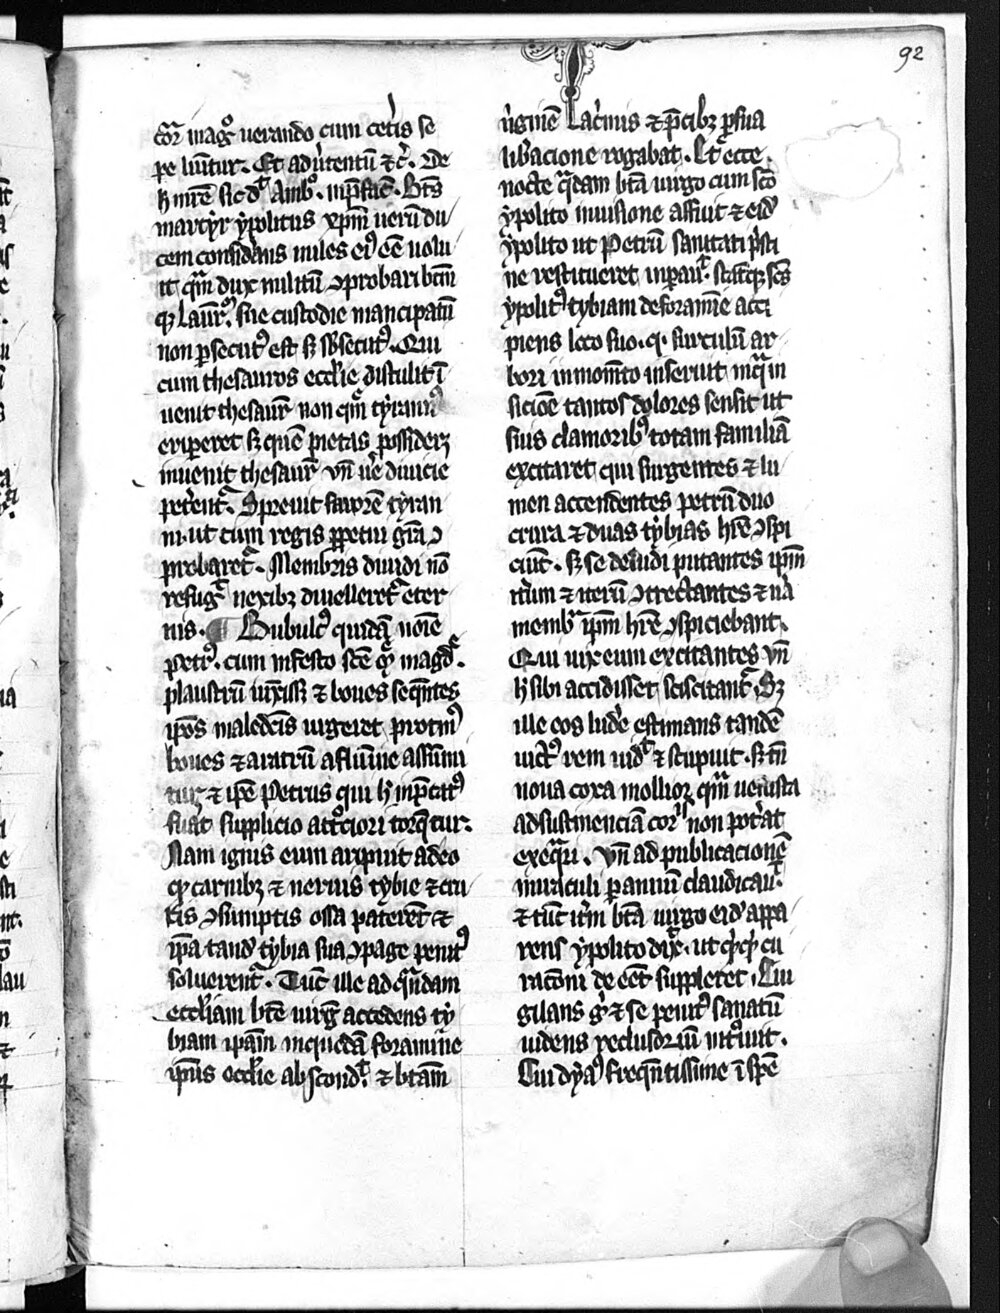 92
cor̄ mag̊ uerando cum cet̉is se
pe lūntur. Et adu̾tentū ⁊c̾. De
h̾ mr̄e sic d̾ Amb̾. in p̄fac̄. Bt̄s
martyr ypolitus xp̄m uerū du
cem considerans miles eiꝰ eē uolu
it qm̄ dux militū ꝯprobari btm̄
qꝫ laur̄. sue custodie mancipatū
non ꝑsecutꝰ est sꝫ sb̾secutꝰ. Qui
cum thesauros eccl̄ie distulit ī
uenit thesaur̄ non qm̄ tyrannꝰ
eriperet sꝫ quē pietas possideꝫ
inuenit thesaur̄ vn̄ ue̾ diuicie
pete̾rent̾. Spreuit fauorē tyran
ni. ut cum regis ꝑpetui grā ꝯ
probaret̾. Membris diuidi nō
refug̾ nexibꝫ diuelleret̾ eter
nis. Bubulcꝰ quidā noīe
petrꝰ. cum in festo scē m̄ magd̾.
plaustrū iūxissꝫ ⁊ boues seqn̄tes
ip̄os maledcīs urgeret protinꝰ
boues ⁊ aratrū a fulmine assumū
tur ⁊ ip̄e petrus qui h̾ inp̄catꝰ
fuāt supplicio at̾ciori torq̄tur.
Nam ignis eum aripuit adeo
qꝫ carnibꝫ ⁊ neruis tybie ⁊ cru
ris ꝯsumptis ossa paterēt ⁊
ip̄a tand̾ tybia sua ꝯpage penitꝰ
soluerent̾. Tūc ille ad qn̄dam
eccl̄iam btē uirg̾ accedens ty
biam ip̄am in quodā foramine
ipi̾us eccl̄ie abscond̾. ⁊ btām
uirginē lac̾mis ⁊ p̄cibꝫ ꝑ sua
lib̾acione rogabat. Et ecce
nocte qᷓdam btā uirgo cum scō
ypolito in uisione affuit ⁊ eid̾
ypolito ut petrū sanitati p̾sti
ne restitueret inpau̾. statīqꝫ scs̄
ypolitꝰ tybiam de foramine acci
piens loco suo. q̾. surculū ar
bori in momēto inseruit in qᷓ in
sicioē tantos dolores sensit ut
suis clamoribꝰ totam familiā
excitaret qui surgentes ⁊ lu
men accendentes petrū duo
crura ⁊ duas tybias hr̄e ꝯspi
ciūt. sꝫ se deludi putantes ip̄m
itn̾um ⁊ iterū ꝯtrectantes ⁊ uā
membrᷓ ip̄m hr̄e ꝯspiciebant.
Qui uix eum excitantes vn̄
h̾ sibi accidisset scisitant̾. Sꝫ
ille eos lude̾ estimans tandē
uictꝰ rem uid̾ ⁊ stupuit. sꝫ tn̄
noua coxa mollior qm̄ uetusta
ad sustinenciā cor̄ non pot̾at
exeqᷓri. vn̄ ad publicacionē
miraculi ꝑ annū claudicau̾.
⁊ tūc itm̄ btā uirgo eid̾ appa
rens ypolito dix̾. ut qꝫqꝫ cu
racōni deeēt suppleret. Eui
gilans g̾ ⁊ se penitꝰ sanatū
uidens reclusoriū int̾uit.
Cui dyaꝰ frequn̄tissime ī spē